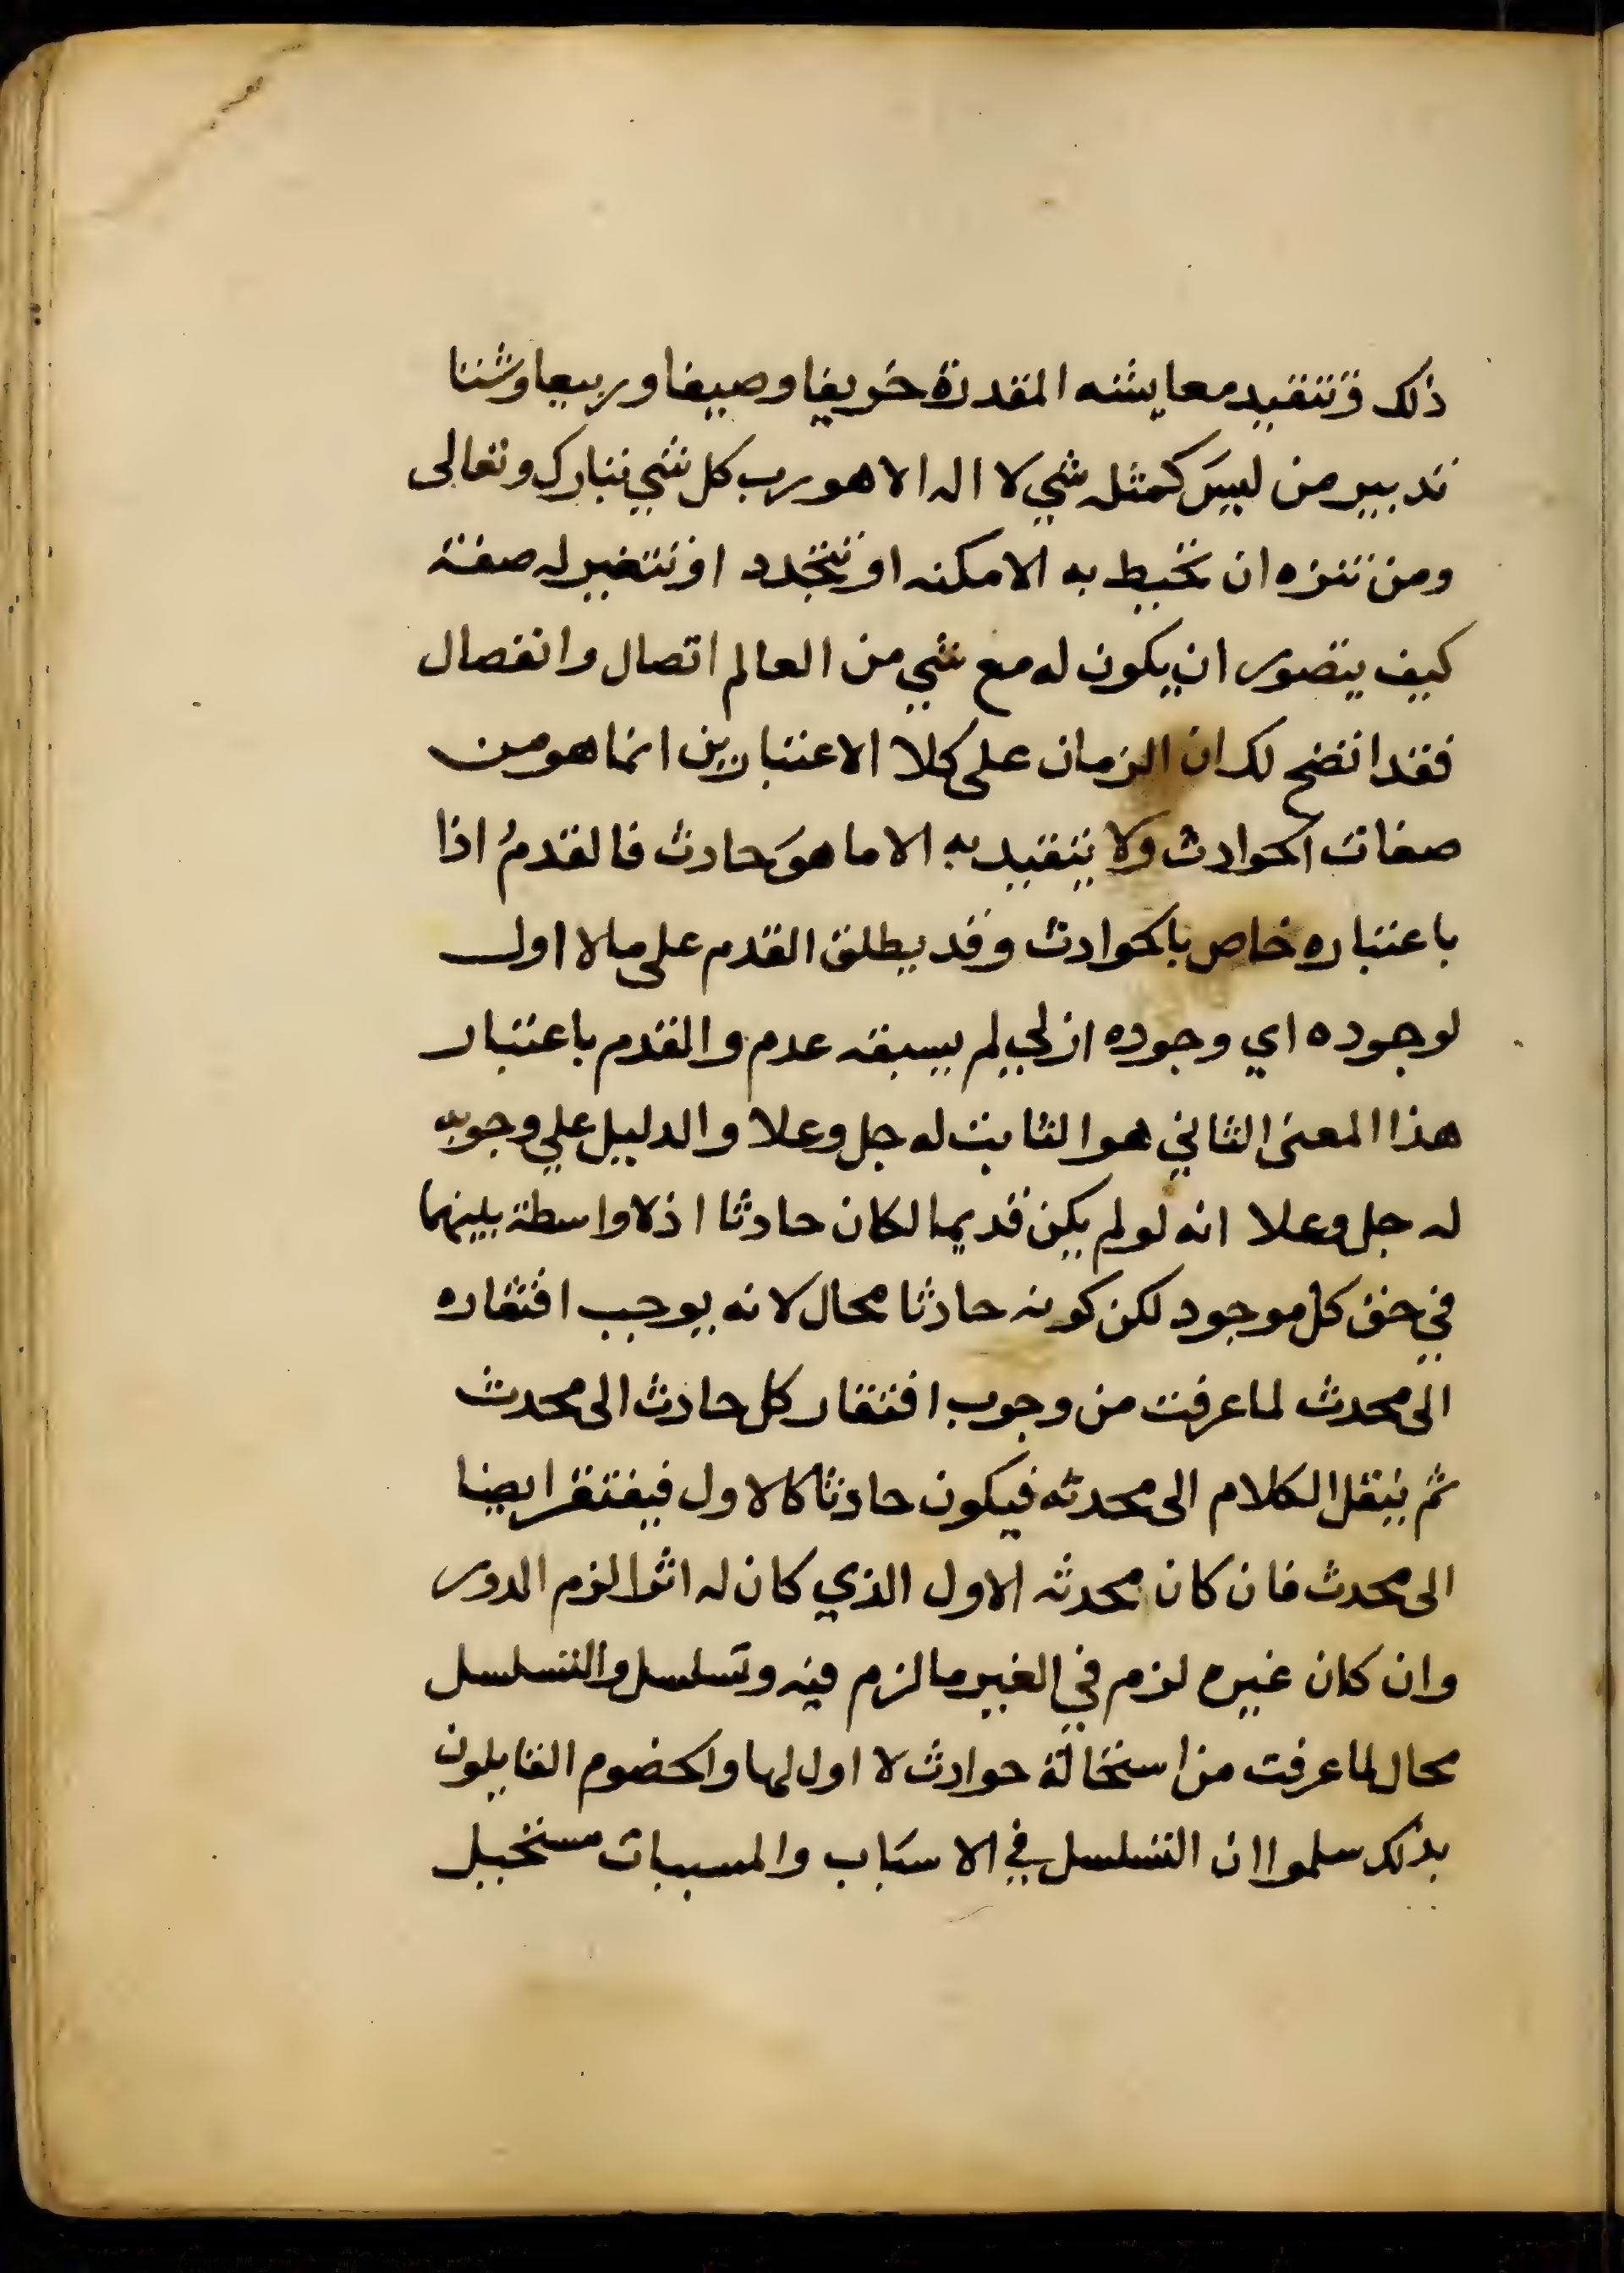 ذلك وتتقيد معايشه المقدرة خريفا وصيفا وربيعا وشتا
تدبير من ليسَ كمثله شي لا اله الا هو رب كل شي تبارك وتعالى
ومن تنزه ان تحيط به الامكنه او تتجدد او تتغير له صفة
كيف يتصور ان يكون له مع شي من العالم اتصال وانفصال
فقد اتضح لك ان الزمان على كلا الاعتبارين انما هو من
صفات الحوادث ولا يتقيد به الا ما هوَ حادث فالقدمُ اذا
باعتباره خاص بالحوادث وقد يطلق القدم على ما لا اول
لوجوده اي وجوده ازلي لم يسبقه عدم والقدم باعتبار
هذا المعنى الثاني هو الثابت له جل وعلا والدليل علي وجوبه
له جل وعلا انه لو لم يكن قديما لكان حادثا اذ لا واسطة بينهما
في حق كل موجود لكن كونه حادثا محال لانه يوجب افتقاره
الى محدث لما عرفت من وجوب افتقار كل حادث الى محدث
ثم ينقل الكلام الى محدثه فيكون حادثا كالاول فيفتقر ايضا
الى محدث فان كان محدثه الاول الذي كان له اثرا لزم الدور
وان كان غيره لزم في الغير ما لزم فيه وتسلسل والتسلسل
محال لما عرفت من استحالة حوادث لا اول لها والخصوم القايلون
بذلك سلموا ان التسلسل في الاسبَاب والمسببات مستحيل